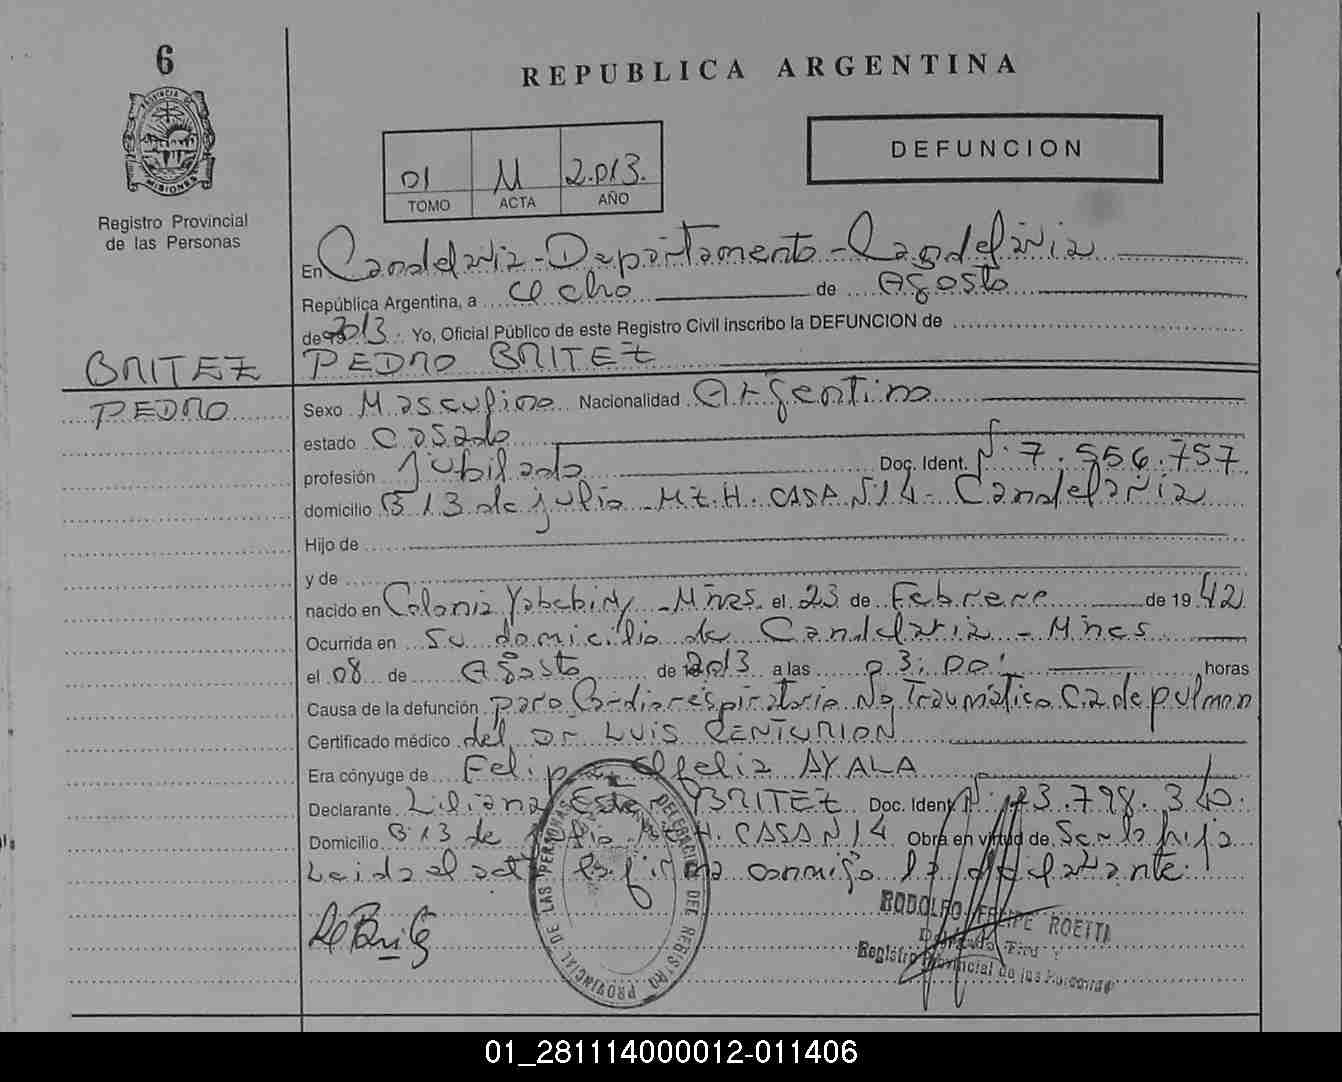 6
REPUBLICA ARGENTINA
PROVINCIA DE
MISIONES
DEFUNCION
01 11 2.013.
TOMO ACTA AÑO
Registro Provincial
de las Personas
En Candelaria - Departamento - Candelaria
República Argentina, a ocho de Agosto
de 2013. Yo, Oficial Público de este Registro Civil inscribo la DEFUNCION de
BRITEZ PEDRO BRITEZ
PEDRO Sexo Masculino Nacionalidad Argentino
estado Casado
profesión Jubilado Doc. Ident. Nº 7.556.757
domicilio B 13 de julio - MZ.H. CASA N 14 - Candelaria
Hijo de
y de
nacido en Colonia Yabebiry - Mnes. el 23 de Febrero de 1942
Ocurrida en su domicilio de Candelaria - Mnes
el 08 de Agosto de 2013 a las 03:00 horas
Causa de la defunción paro Cardiorespiratorio No Traumático Ca de pulmon
Certificado médico del Dr LUIS CENTURION
Era cónyuge de Felipa AYALA
Declarante Liliana Ester BRITEZ Doc. Ident. Nº 23.798.340.
Domicilio B 13 de Julio MZ H. CASA N 14 Obra en virtud de Ser la hija
Leida el acta la firma conmigo la declarante.
DELEGACION DEL REGISTRO PROVINCIAL DE LAS PERSONAS
RODOLFO FELIPE ROETTI
Registro Provincial de las Personas
01_281114000012-011406